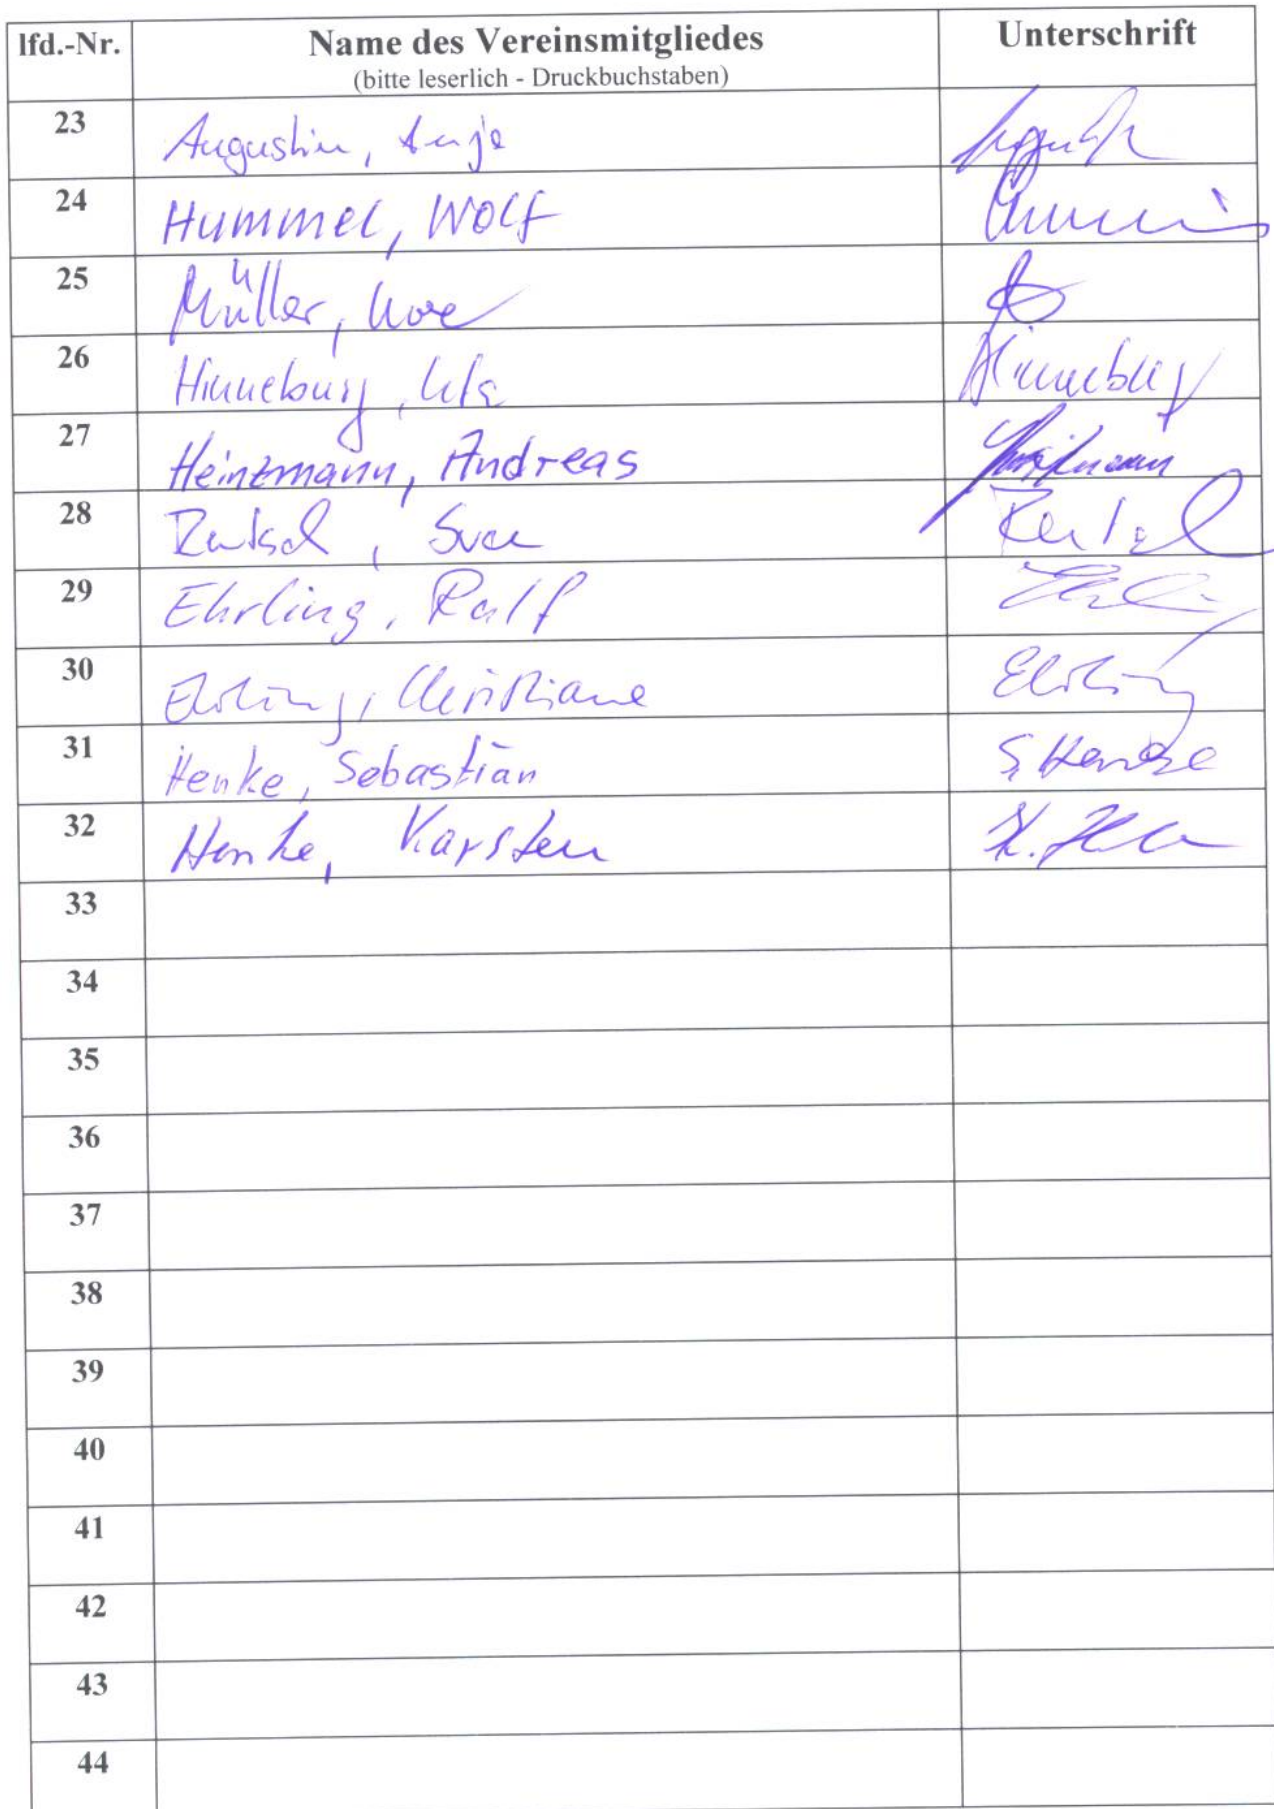 lfd.-Nr. Name des Vereinsmitgliedes Unterschrift
(bitte leserlich - Druckbuchstaben)
23 Augustin, Anja
24 Hummel, Wolf
25 Müller, Uwe
26 Hinneburg, Uta Hinneburg
27 Heinzmann, Andreas
28 Sven
29 Ehrling, Ralf
30 Ehrling, Christiane Ehrling
31 Henke, Sebastian S. Henke
32 Henke, Karsten
33
34
35
36
37
38
39
40
41
42
43
44